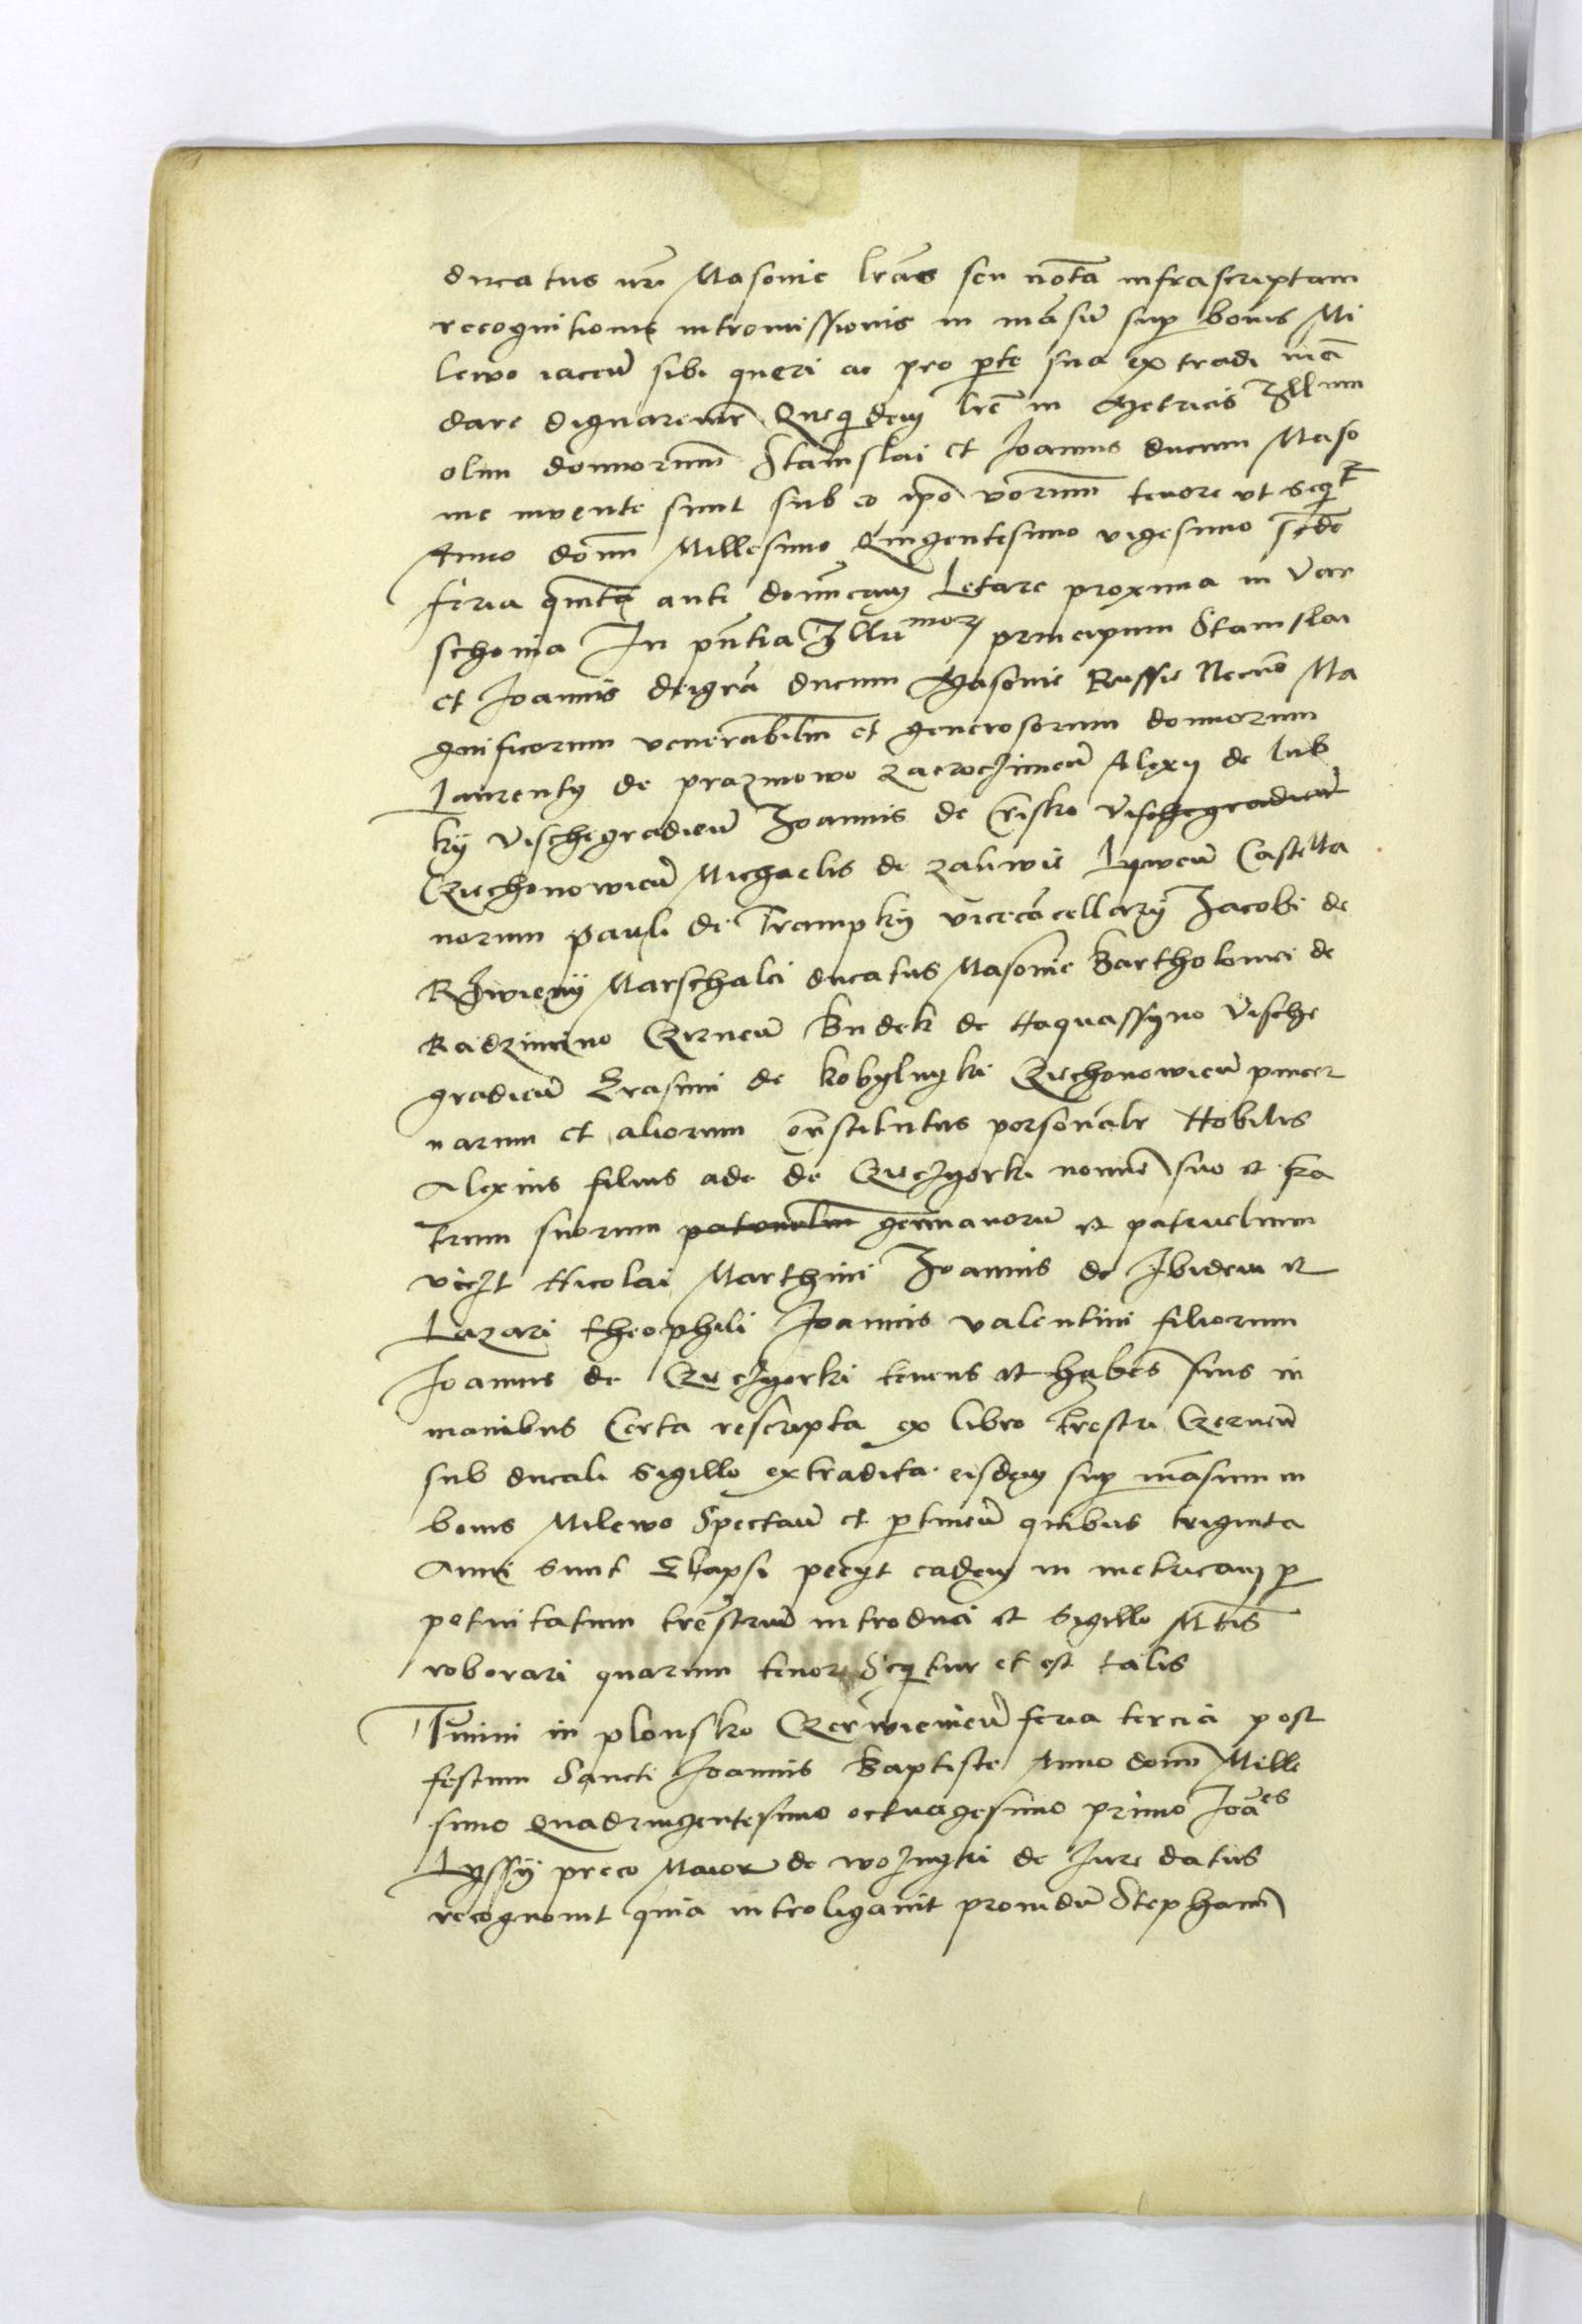 ducatus nr̄i Masovie lr̄as seu notā infrascriptam
recognitionis intromissionis in māsū sup bonis Mi
lewo iaceñ sibi queri ac pro pte sua extradi mā
dare dignaremr Que quidem lr̄e in Metricis Illmm
olim dominorum Stanislai et Joannis ducum Maso
vie invente sunt sub eo ipo verborum tenore ut seqr
Anno domi Millesimo Quingentesimo vigesimo scdo
feria quinta ante dominicam Letare proxima in Var
schovia In pñtia Illumor principum Stanislai
et Joannis dei gra ducum Masovie Russie Necno Ma
gnificorum venerabilim et generosorum dominorum
Laurentÿ de prazmowo Zacroczimeñ Alexÿ de lub
kÿ Vischegradieñ Joannis de Crisko Vischegradieñ
Cziechonowieñ Michaelis de Zaliwie Lyweñ Castella
norum pauli de Trampky vicecācellarÿ Jacobi de
Rzwienÿ Marschalci ducatus Masovie Bartholomei de
Radzimino Czirneñ Budek de Naquassyno Vische
gradieñ Erasmi de kobylnyki Cziechonowieñ pincer
narum et aliorum constitutus personalr Nobilis
Alexius filius ade de Cziezgorki nomine suo et fra
trum suorum patruelim germanorū et patruelium
viczt Nicolai Marthini Joannis de Ibidem et
Lazari theophili Joannis valentini filiorum
Joannis de Cziezgorki tenens et habēs suis in
manibus Certa rescripta ex libro trestri Czerneñ
sub ducali sigillo extradita eisdem sup māsum in
bonis Milewo Spectañ et ptineñ quibus triginta
Anni sunt Elapsi peciyt eadem in metricam p
petuitatum trestriū introduci et sigillo Mtis
roborari quarum tenor Sequitur et est talis
Tmini in plonsko Czerwieneñ feria tercia post
festum Sancti Joannis Baptiste Anno domi Mille
simo quadringentesimo octuagesimo primo Joães
Lyssÿ preco Maior de woznyki de Jure datus
recognovit quia introligavit providū Stephanū